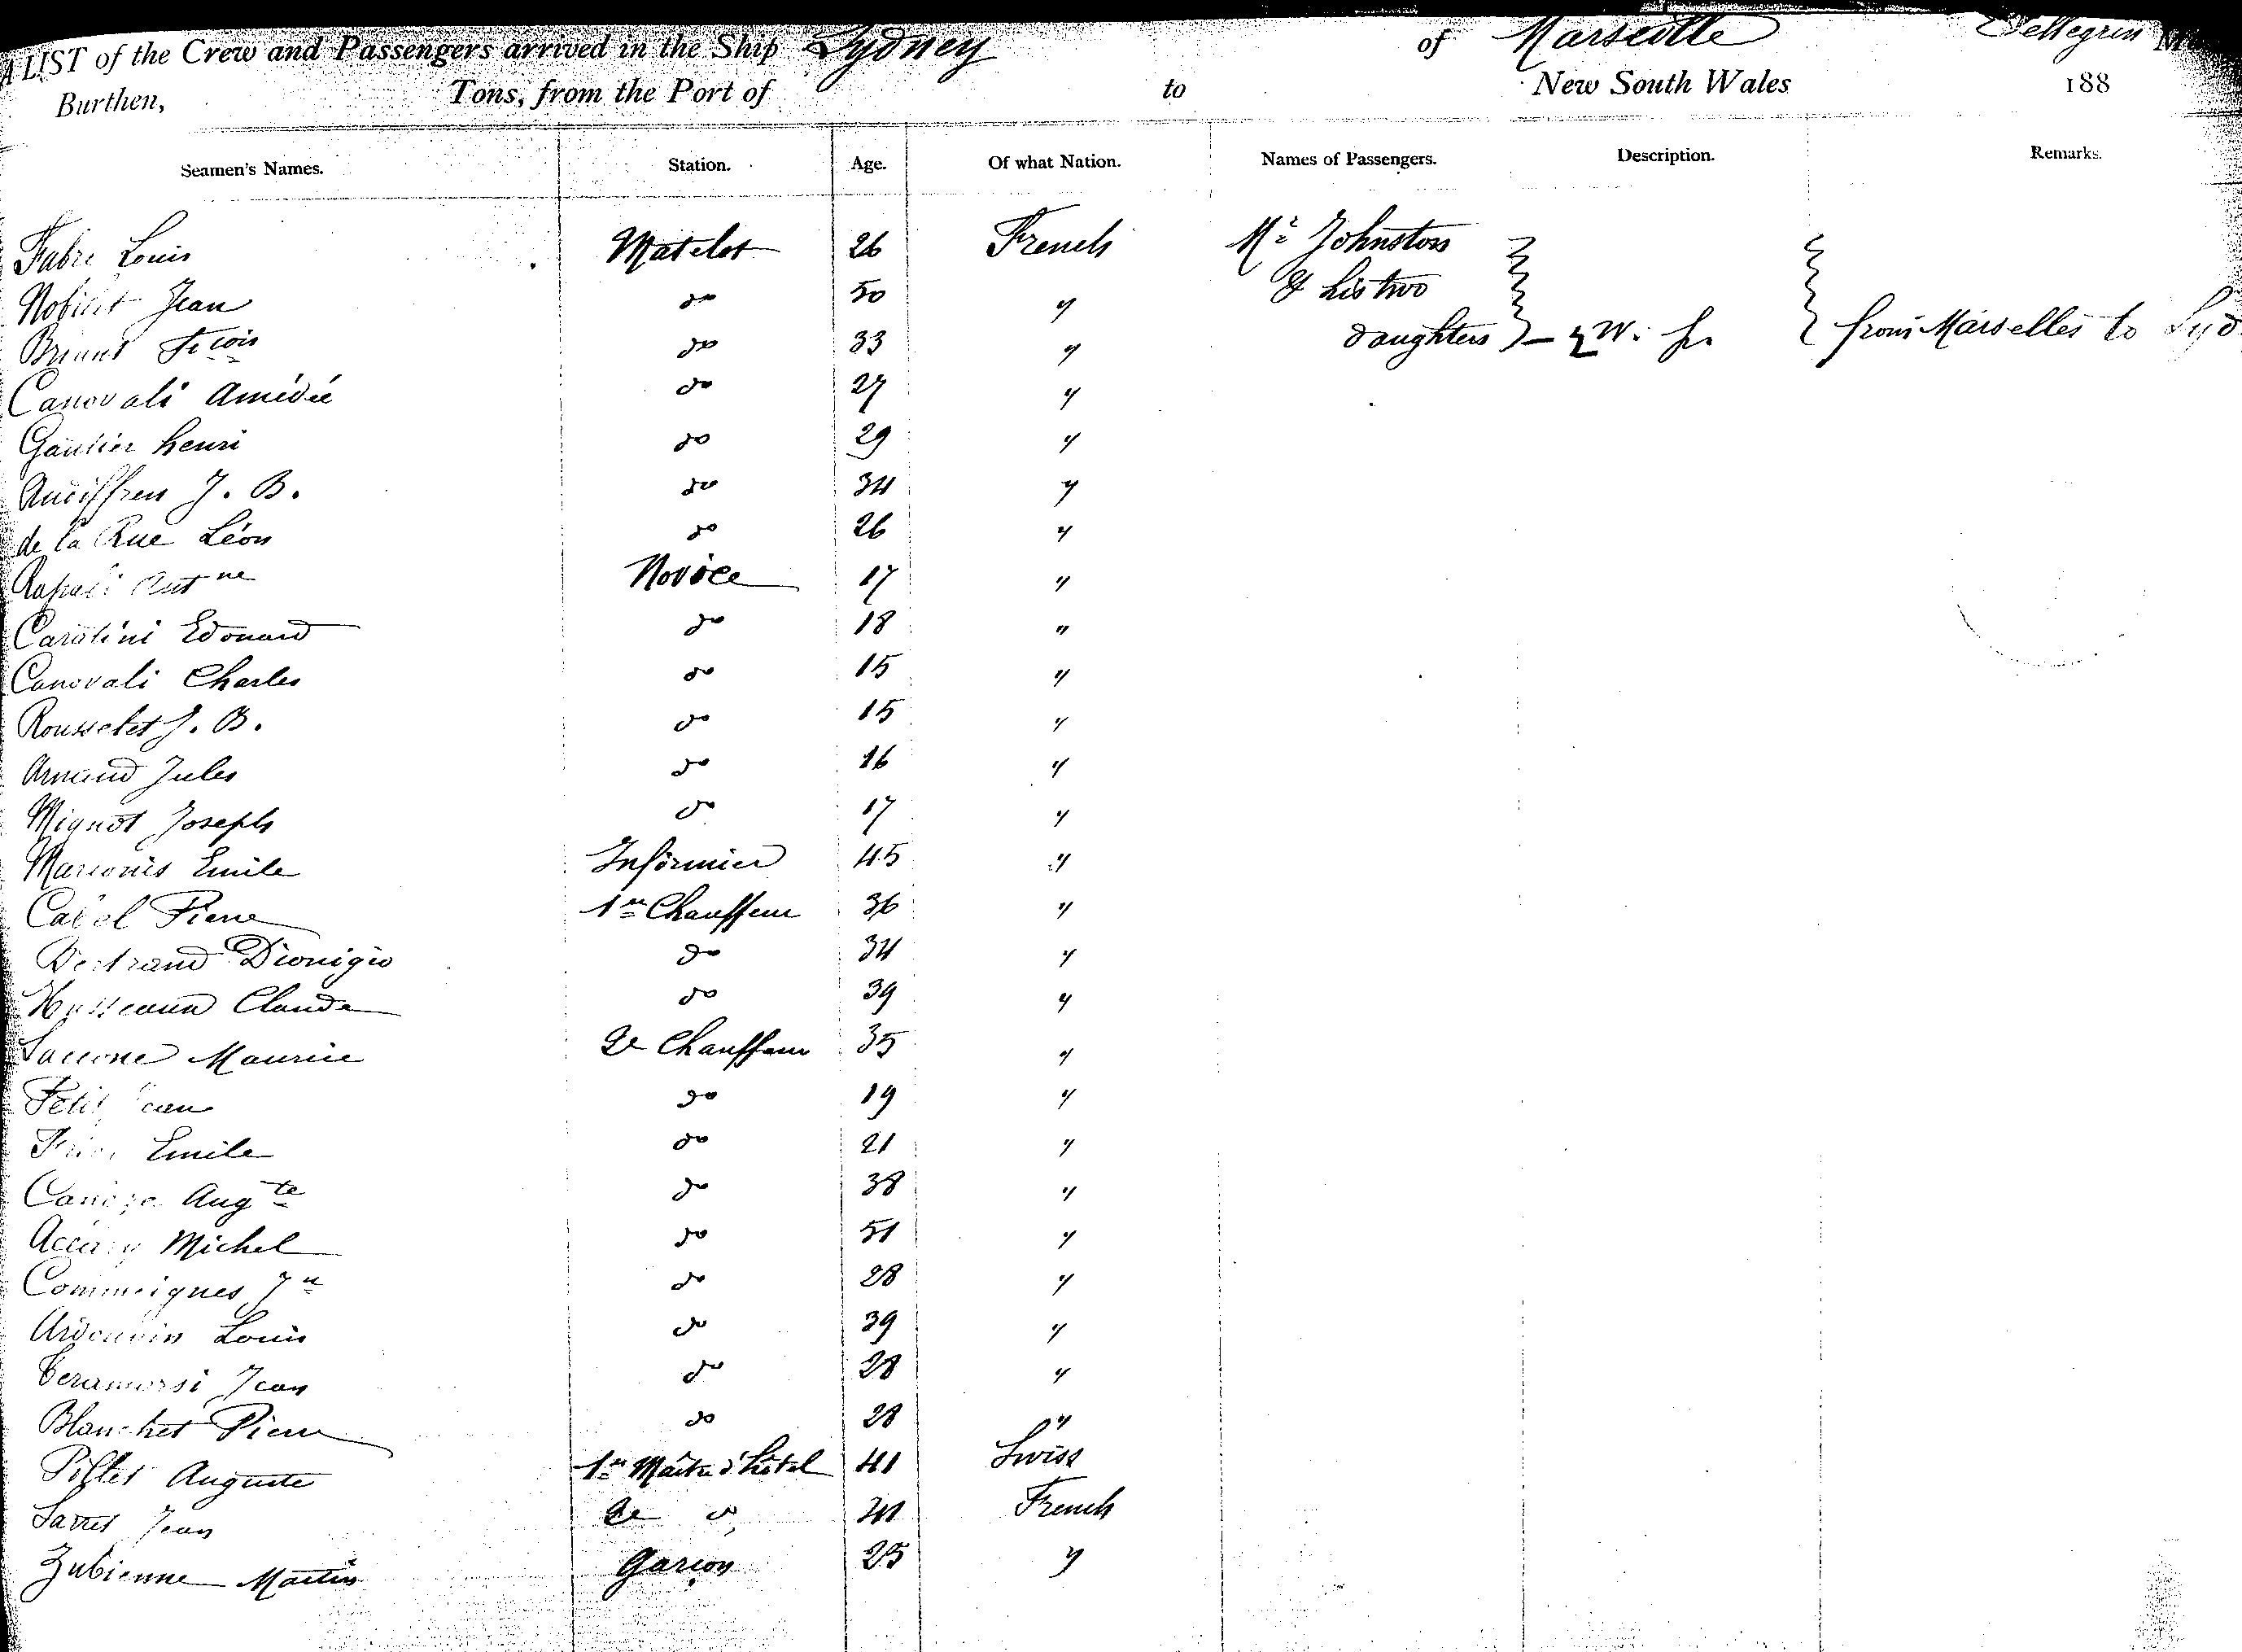 A LIST of the Crew and Passengers arrived in the Ship Sydney of Marseille Pellegrin
Burthen, Tons, from the Port of to New South Wales 188
Seamen's Names. Station. Age. Of what Nation. Names of Passengers. Description. Remarks.
Fabre Louis Matelot 26 French Mr Johnston
Jean do 50 " & his two
Fcois do 33 " daughters from Marseilles to Syd
Canovali Amédée do 27 "
Gautier henri do 29 "
Audiffren J. B. do 34 "
de la Rue Léon do 26 "
Antne Novice 17 "
Edouard do 18 "
Canovali Charles do 15 "
Rousselet J. B. do 15 "
Arnaud Jules do 16 "
Mignot Joseph do 17 "
Emile Infirmier 45 "
Pierre 1er Chauffeur 36 "
Bertrand Dionigio do 34 "
Claude do 39 "
Saccone Maurice 2e Chauffeur 35 "
Petit do 19 "
Emile do 21 "
Augte do 38 "
Michel do 51 "
Commeignes Jn do 28 "
Ardouvin Louis do 39 "
Jean do 28 "
Blanchet Pierre do 28 "
Pillet Auguste 1er Maitre d'hôtel 41 Swiss
Jean 2e do French
Zubienne Martin Garçon 25 "